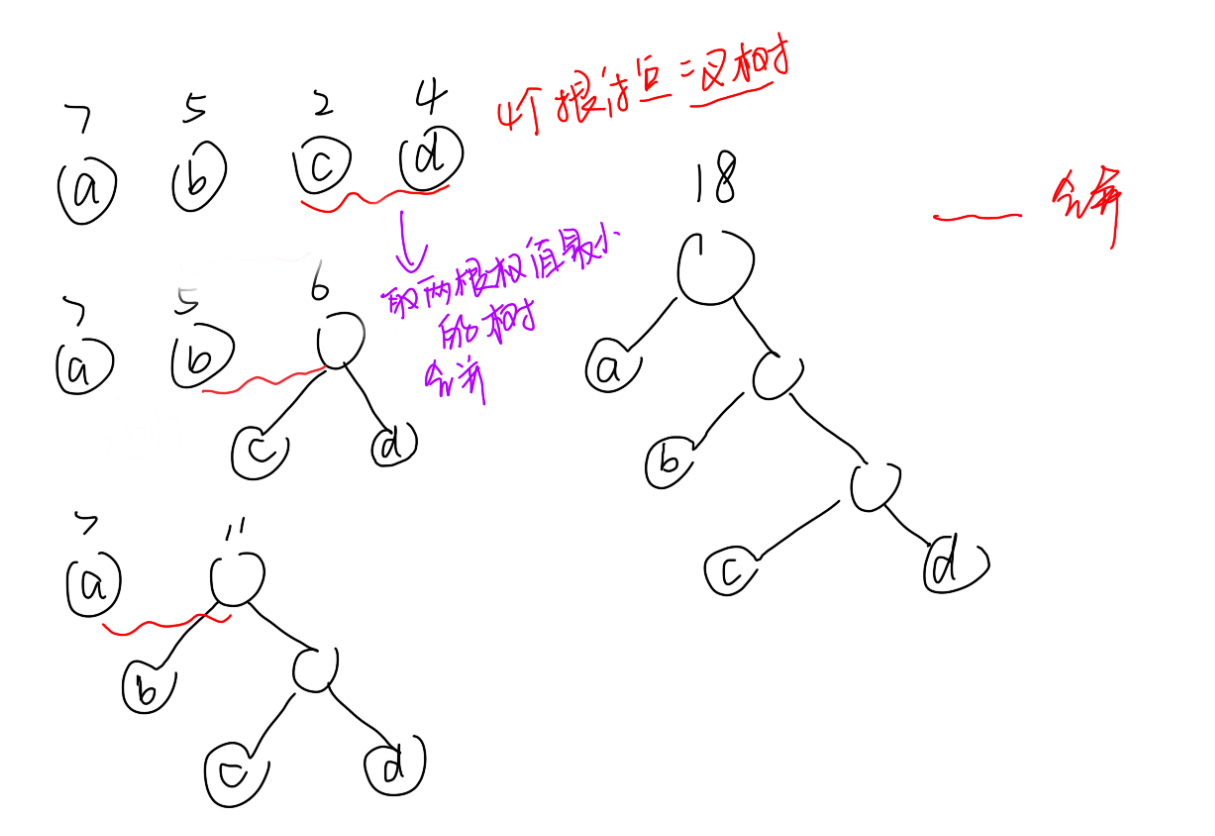 7 5 2 4
a b c d
4个根结点二叉树
合并
取两根权值最小
的树
合并
7 5 6
a b
c d
7 11
a
b
c d
18
a
b
c d